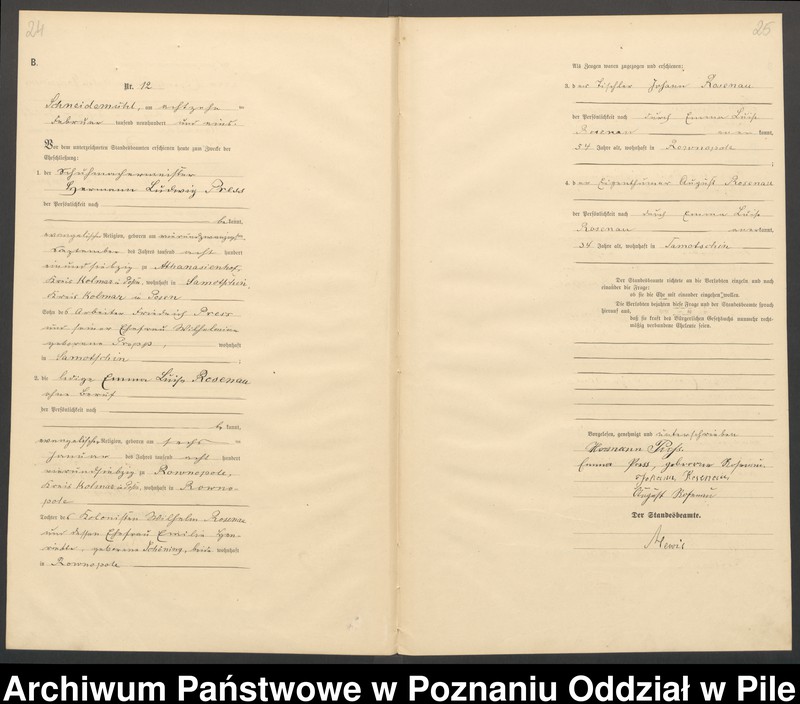 24
B.
Nr. 12
Schneidemühl, am achtzehn
Februar tausend neunhundert und eins.
Vor dem unterzeichneten Standesbeamten erschienen heute zum Zwecke der
Eheschließung:
1. der Schuhmachermeister
Hermann Ludwig Press
der Persönlichkeit nach
be kannt,
evangelischer Religion, geboren am vierundzwanzigsten
September des Jahres tausend acht hundert
einundsiebzig zu Athanasienhof,
Kreis Kolmar i. Posen, wohnhaft in Samotschin
Kreis Kolmar i. Posen
Sohn des Arbeiter Friedrich Press
und seiner Ehefrau Wilhelmine
geborene, wohnhaft
in Samotschin ;
2. die ledige Emma Luise Rosenau
ohne Beruf
der Persönlichkeit nach
be kannt,
evangelischer Religion, geboren am sechs
Januar des Jahres tausend acht hundert
vierundsiebzig zu Rownopole,
Kreis Kolmar i. Posen, wohnhaft in Rowno-
pole
Tochter des Kolonisten Wilhelm Rosenau
und dessen Ehefrau Emilie Hen-
riette, geborene Schöning, beide wohnhaft
in Rownopole
25
Als Zeugen waren zugezogen und erschienen:
3. der Tischler Johann Rosenau
der Persönlichkeit nach durch Emma Luise
Rosenau anerkannt,
34 Jahre alt, wohnhaft in Rownopole
;
4. der Eigenthümer August Rosenau
der Persönlichkeit nach durch Emma Luise
Rosenau anerkannt,
34 Jahre alt, wohnhaft in Samotschin
Der Standesbeamte richtete an die Verlobten einzeln und nach
einander die Frage:
ob sie die Ehe mit einander eingehen wollen.
Die Verlobten bejahten diese Frage und der Standesbeamte sprach
hierauf aus,
daß sie kraft des Bürgerlichen Gesetzbuchs nunmehr recht-
mäßig verbundene Eheleute seien.
Vorgelesen, genehmigt und unterschrieben
Hermann Press.
Emma Press, geborene Rosenau.
Johann Rosenau
August Rosenau
Der Standesbeamte.
Mewis
Archiwum Państwowe w Poznaniu Oddział w Pile